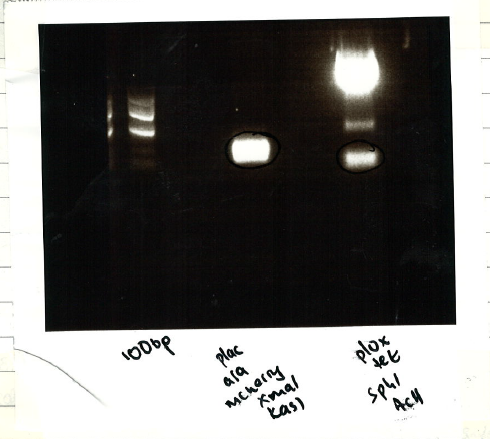 100bp
plac
ara
mcherry
XmaI
KasI
plox
tet
SphI
AclI